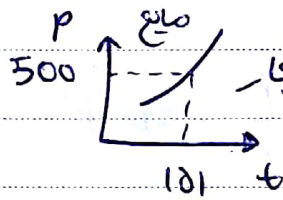 P مایع
500
151 t